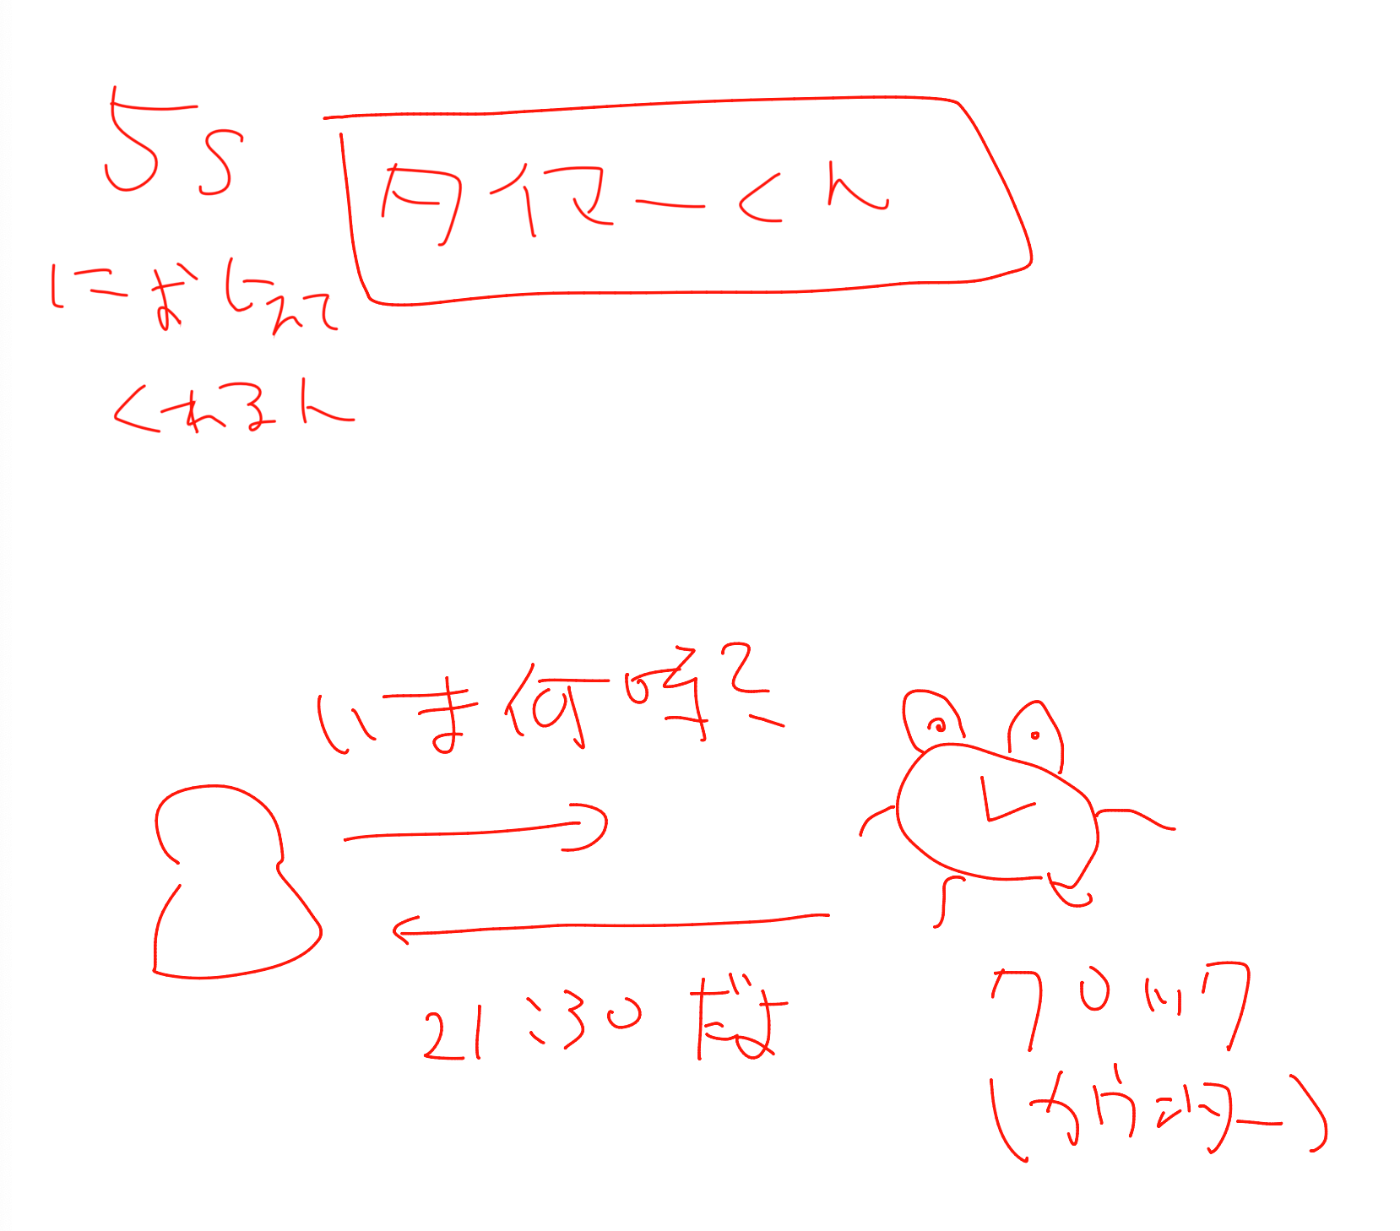 5s
タイマーくん
におしえて
くれるん
いま何時?
21:30だよ
クロック
(カウンター)